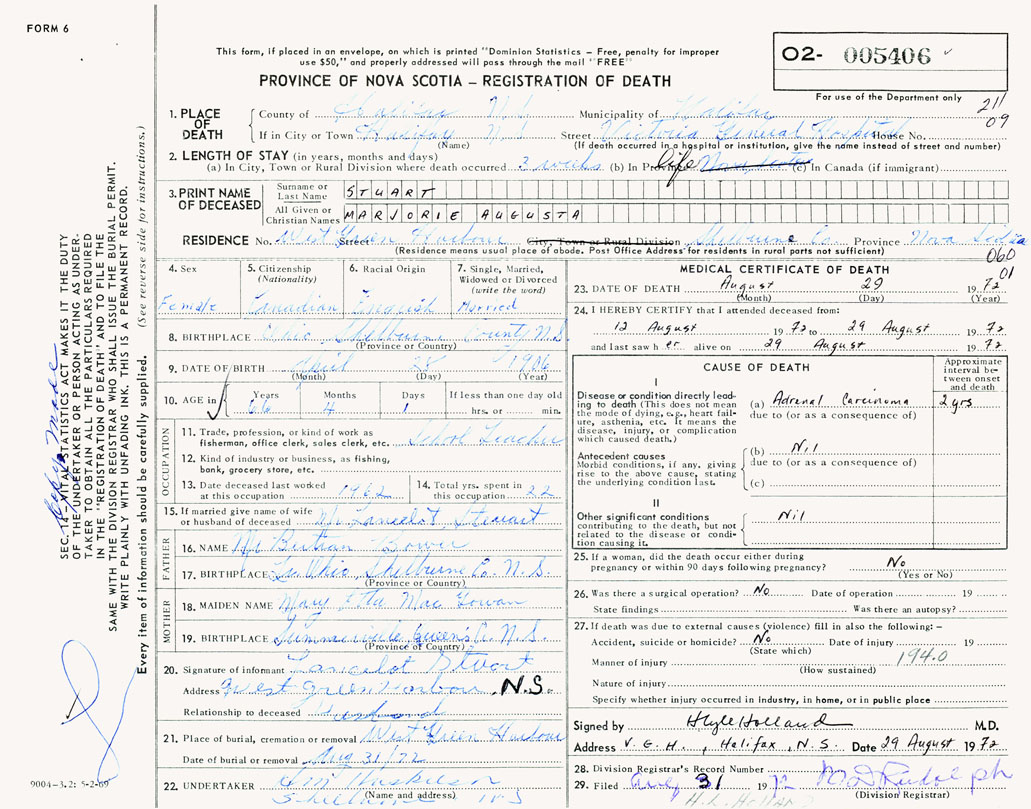 FORM 6
This form, if placed in an envelope, on which is printed "Dominion Statistics — Free, penalty for improper
use $50," and properly addressed will pass through the mail "FREE"
O2- 005406
PROVINCE OF NOVA SCOTIA — REGISTRATION OF DEATH
For use of the Department only
211
09
1. PLACE OF DEATH
County of Halifax N.S. Municipality of Halifax
If in City or Town Halifax N.S. Street Victoria General Hospital House No.
(Name) (If death occurred in a hospital or institution, give the name instead of street and number)
2. LENGTH OF STAY (in years, months and days)
(a) In City, Town or Rural Division where death occurred 3 weeks (b) In Province life Nova Scotia (c) In Canada (if immigrant)
3. PRINT NAME OF DECEASED
Surname or Last Name STUART
All Given or Christian Names MARJORIE AUGUSTA
RESIDENCE No. West Street Green Harbour City, Town or Rural Division Shelburne Co. Province Nova Scotia
(Residence means usual place of abode. Post Office Address for residents in rural parts not sufficient)
060
01
4. Sex
Female
5. Citizenship (Nationality)
Canadian
6. Racial Origin
English
7. Single, Married, Widowed or Divorced (write the word)
Married
8. BIRTHPLACE Ohio Shelburne County N.S.
(Province or Country)
9. DATE OF BIRTH April 28 1906
(Month) (Day) (Year)
10. AGE in Years Months Days If less than one day old
66 4 1 hrs. or min.
OCCUPATION
11. Trade, profession, or kind of work as
fisherman, office clerk, sales clerk, etc. School Teacher
12. Kind of industry or business, as fishing,
bank, grocery store, etc.
13. Date deceased last worked
at this occupation 1962
14. Total yrs. spent in
this occupation 22
15. If married give name of wife
or husband of deceased Mr Lancelot Stewart
FATHER
16. NAME Mr Bower
17. BIRTHPLACE Ohio Shelburne Co. N.S.
(Province or Country)
MOTHER
18. MAIDEN NAME Mary Etta Mac Gowan
19. BIRTHPLACE Summerville Queens Co. N.S.
(Province or Country)
20. Signature of informant Lancelot Stuart
Address West green Harbour N.S.
Relationship to deceased Husband
21. Place of burial, cremation or removal West Green Harbour
Date of burial or removal Aug 31/72
22. UNDERTAKER Huskilson
(Name and address)
Shelburne N.S
MEDICAL CERTIFICATE OF DEATH
23. DATE OF DEATH August 29 1972
(Month) (Day) (Year)
24. I HEREBY CERTIFY that I attended deceased from:
12 August 1972 to 29 August 1972
and last saw h er alive on 29 August 1972
CAUSE OF DEATH
Approximate interval between onset and death
I
Disease or condition directly leading to death (This does not mean the mode of dying, e.g., heart failure, asthenia, etc. It means the disease, injury, or complication which caused death.)
(a) Adrenal Carcinoma 2 yrs
due to (or as a consequence of)
Antecedent causes
Morbid conditions, if any, giving rise to the above cause, stating the underlying condition last.
(b) Nil
due to (or as a consequence of)
(c)
II
Other significant conditions
contributing to the death, but not related to the disease or condition causing it.
Nil
25. If a woman, did the death occur either during
pregnancy or within 90 days following pregnancy? No
(Yes or No)
26. Was there a surgical operation? No Date of operation 19
State findings Was there an autopsy?
27. If death was due to external causes (violence) fill in also the following: —
Accident, suicide or homicide? No Date of injury 19
(State which)
Manner of injury 194.0
(How sustained)
Nature of injury
Specify whether injury occurred in industry, in home, or in public place
Signed by H Lyle Holland M.D.
Address V.G.H., Halifax, N.S. Date 29 August 1972
28. Division Registrar's Record Number
29. Filed Aug 31 1972 Rudolph
(Division Registrar)
H. L. HOLLAND
SEC. 14—VITAL STATISTICS ACT MAKES IT THE DUTY
OF THE UNDERTAKER OR PERSON ACTING AS UNDER-
TAKER TO OBTAIN ALL THE PARTICULARS REQUIRED
IN THE "REGISTRATION OF DEATH" AND TO FILE THE
SAME WITH THE DIVISION REGISTRAR WHO SHALL ISSUE THE BURIAL PERMIT.
WRITE PLAINLY WITH UNFADING INK. THIS IS A PERMANENT RECORD.
Every item of information should be carefully supplied. (See reverse side for instructions.)
9004-3.2: 5-2-69